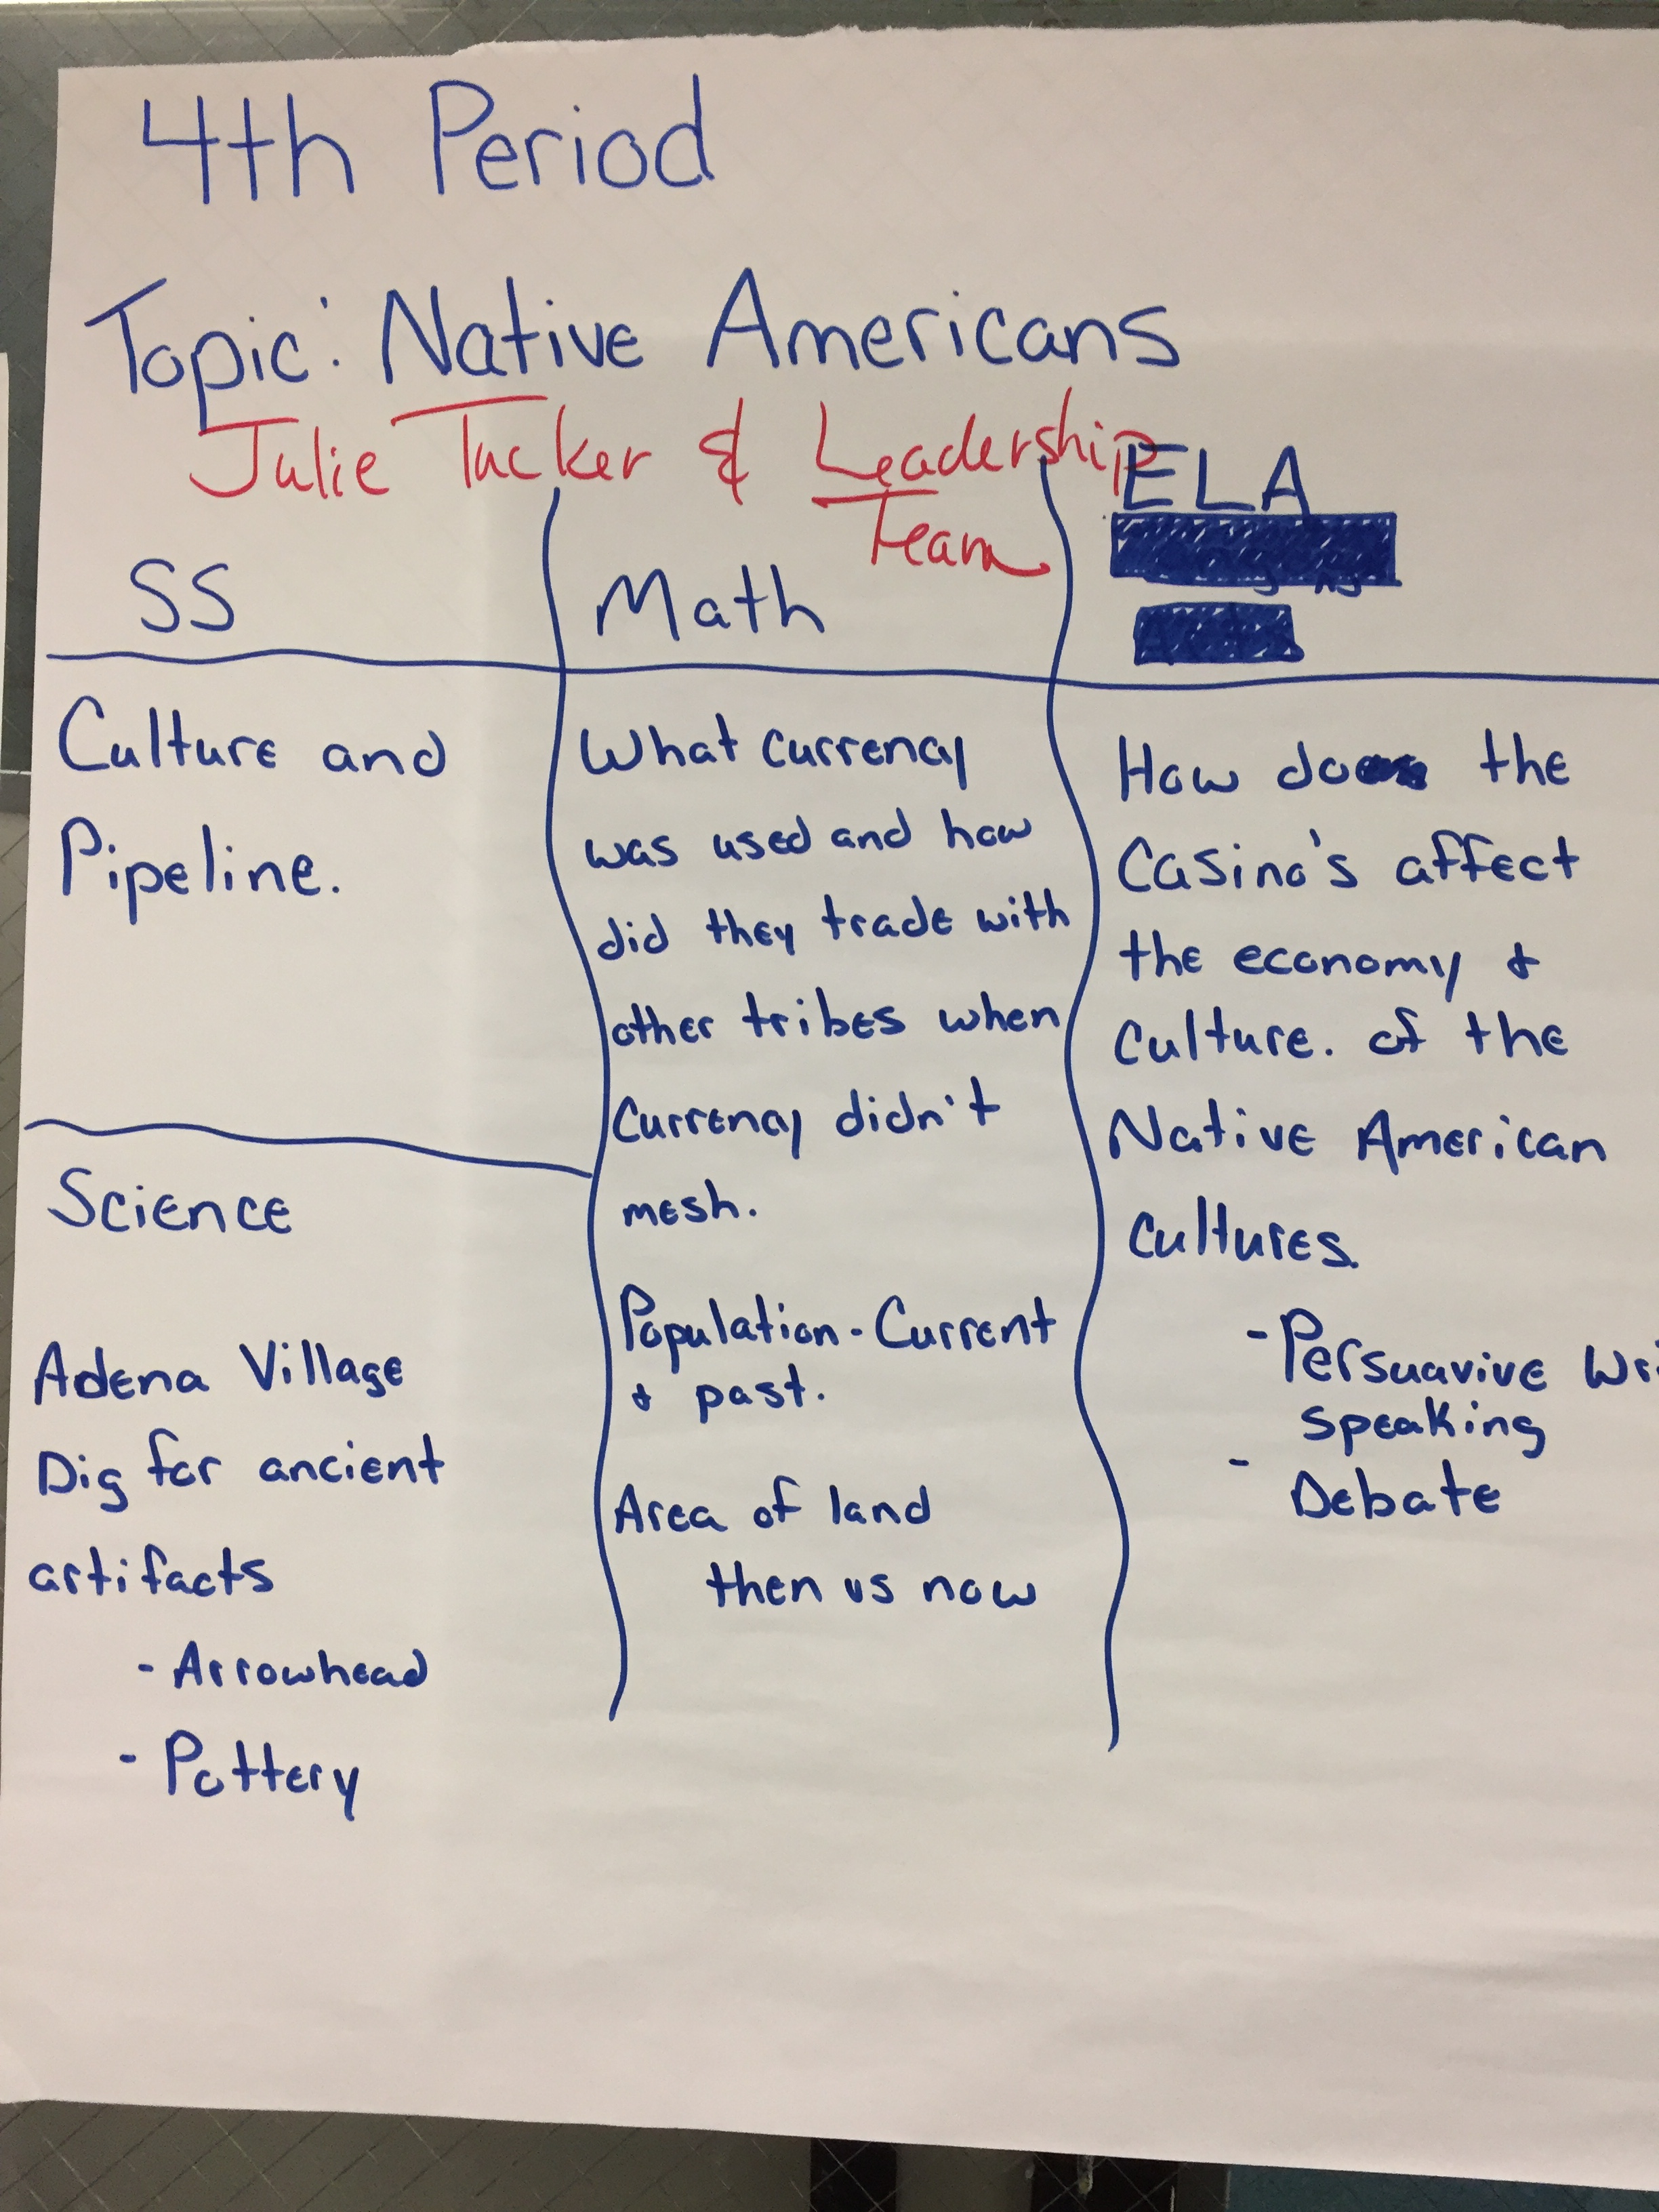 4th Period
Topic: Native Americans
Julie Tucker & Leadership
Team
SS
Culture and
Pipeline.
Science
Adena Village
Dig for ancient
artifacts
- Arrowhead
- Pottery
Math
What currency
was used and how
did they trade with
other tribes when
Currency didn't
mesh.
Population - Current
& past.
Area of land
then vs now
ELA
How do the
Casino's affect
the economy &
Culture. of the
Native American
Cultures.
- Persuavive Wri
speaking
- Debate